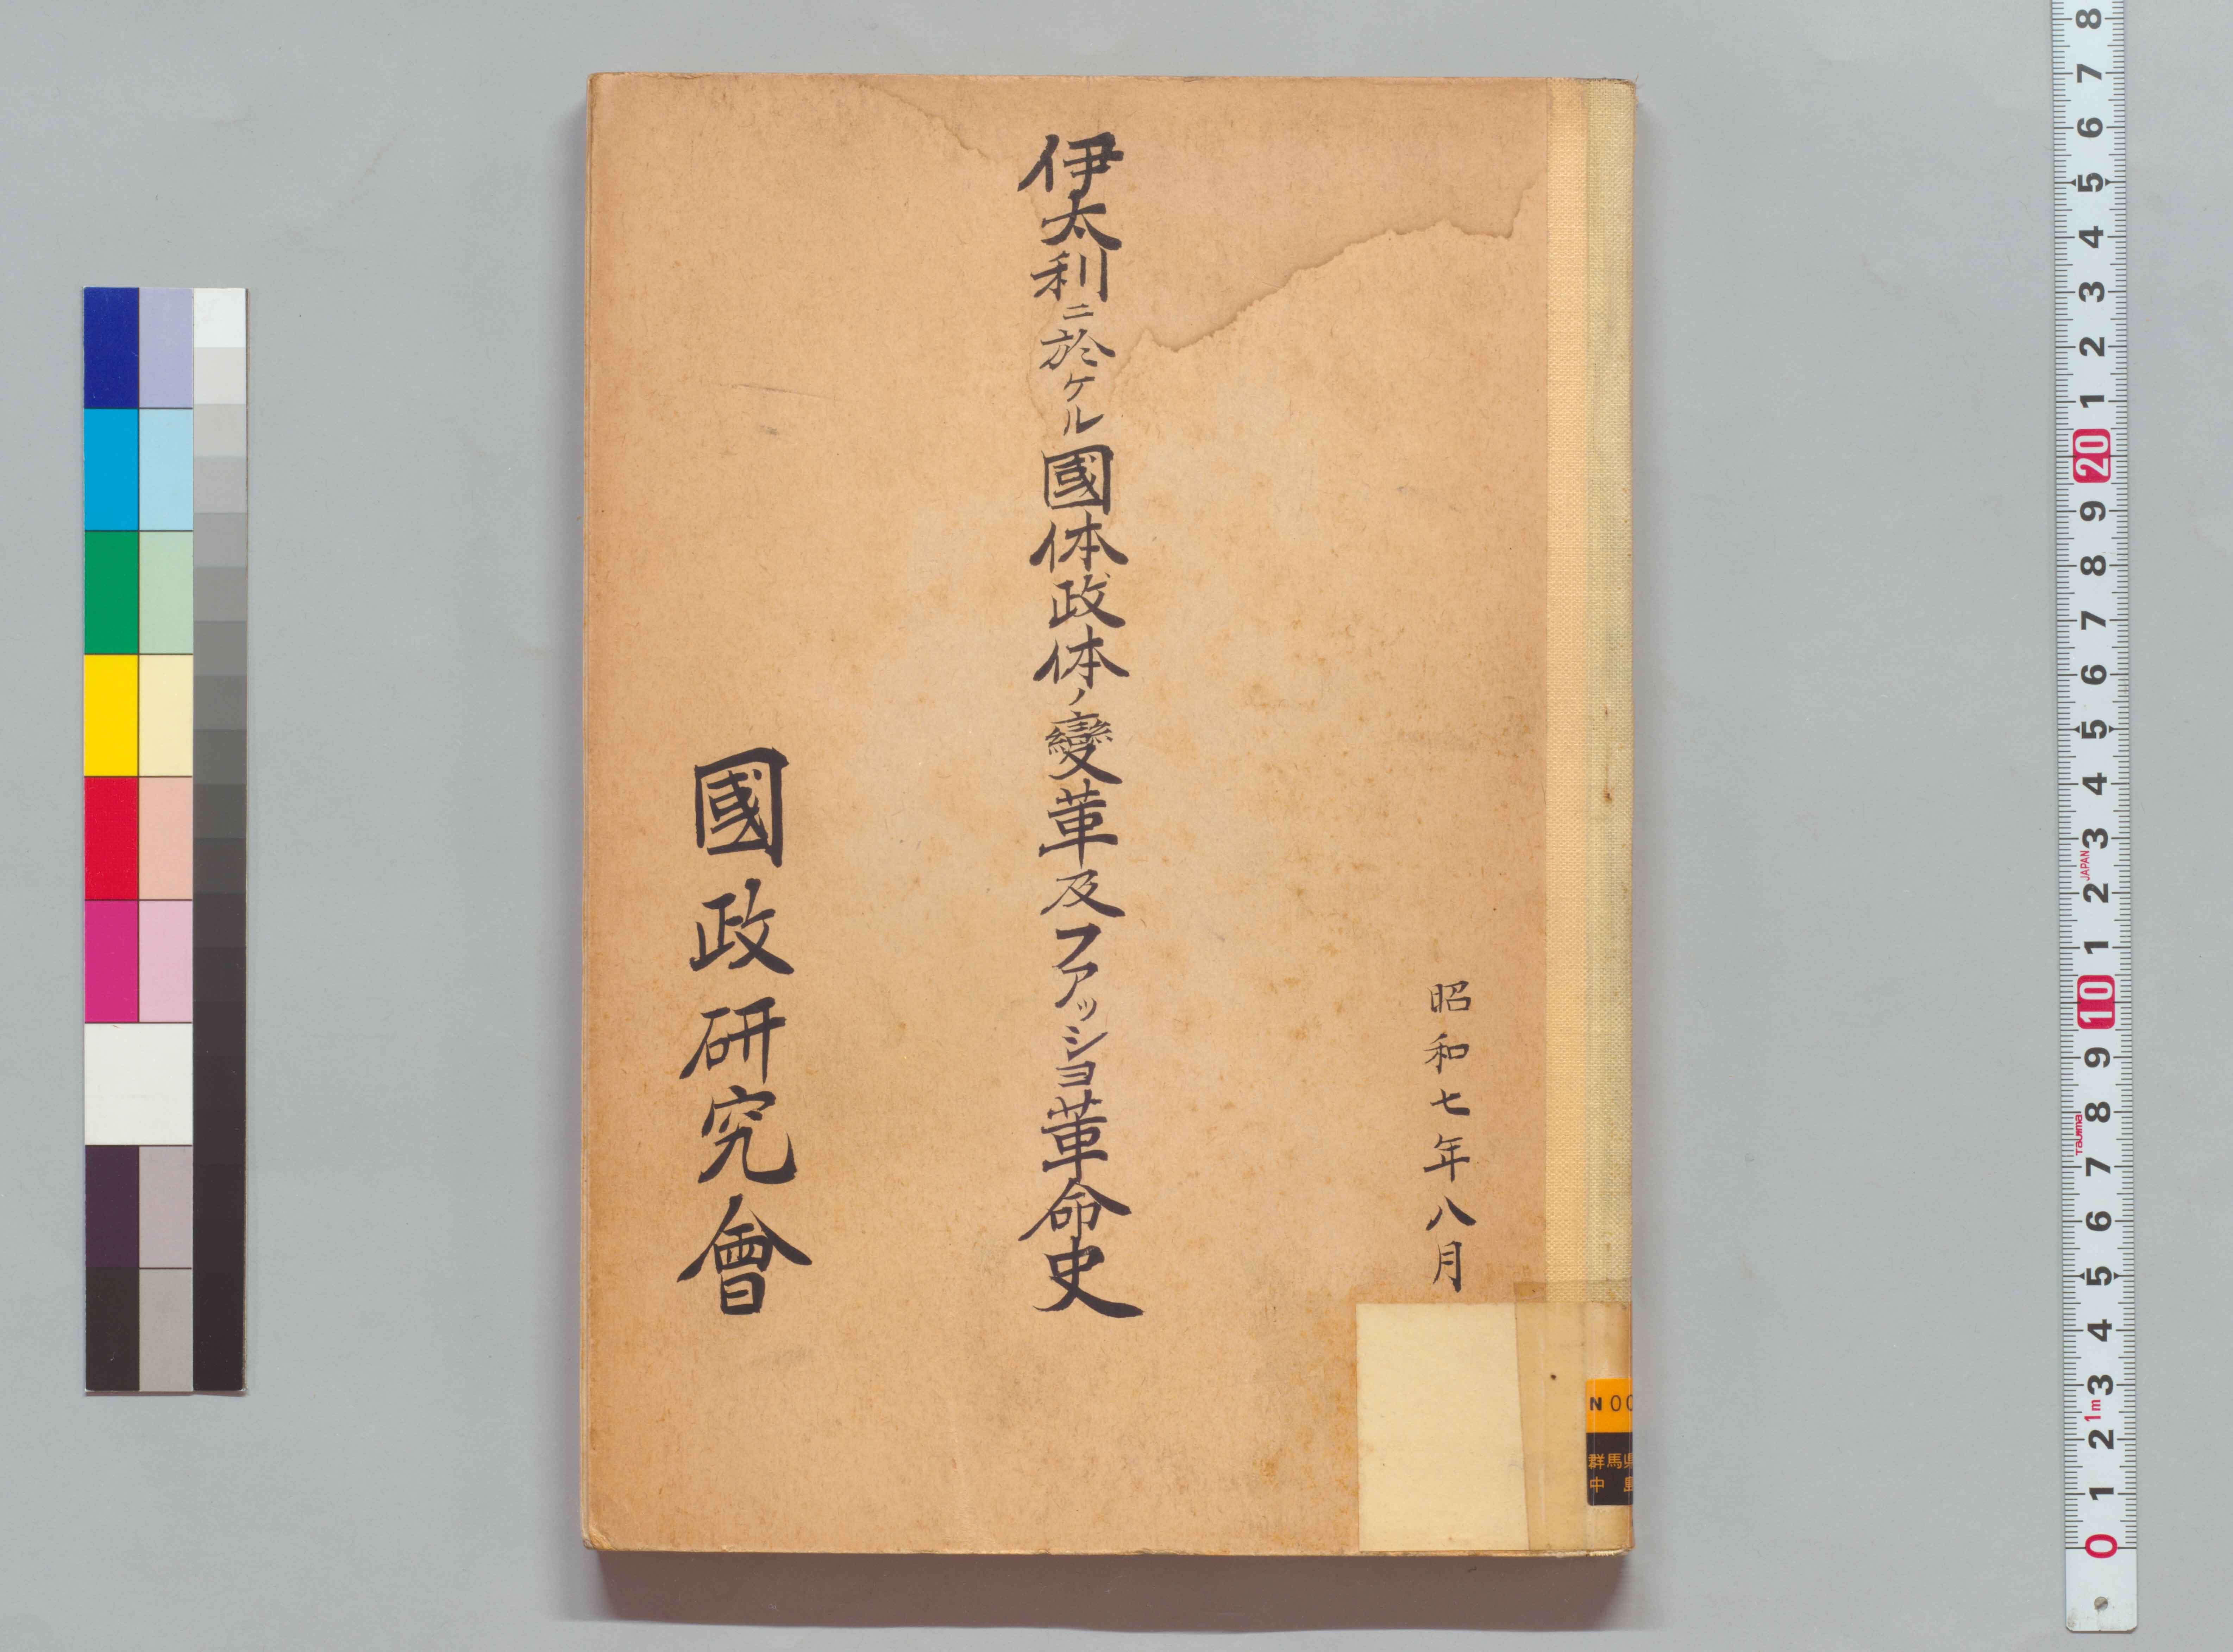 昭和七年八月
伊太利ニ於ケル國体政体ノ變革及ファッショ革命史
國政研究會
N 00
群馬県
中島
8
7
6
5
4
3
2
1
20
9
8
7
6
5
4
3
JAPAN
2
1
10
9
8
Tajima
7
6
5
4
3
1m
2
1
0